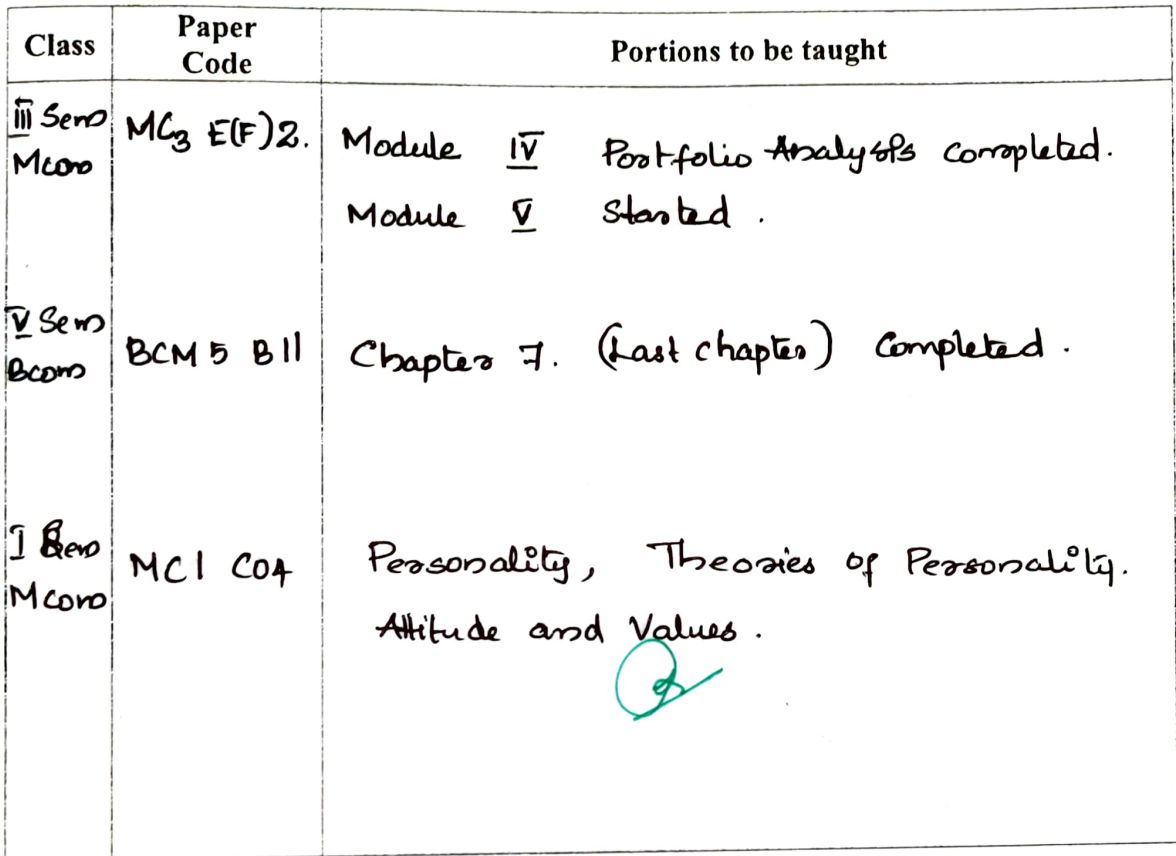 Class Paper Code Portions to be taught
III Sem MC3 E(F)2. Module IV Portfolio Analysis completed.
Mcom Module V Started .
V Sem BCM 5 B11 Chapter 7. (Last chapter) Completed .
Bcom
I Sem MC1 C04 Personality, Theories of Personality.
Mcom Attitude and Values .